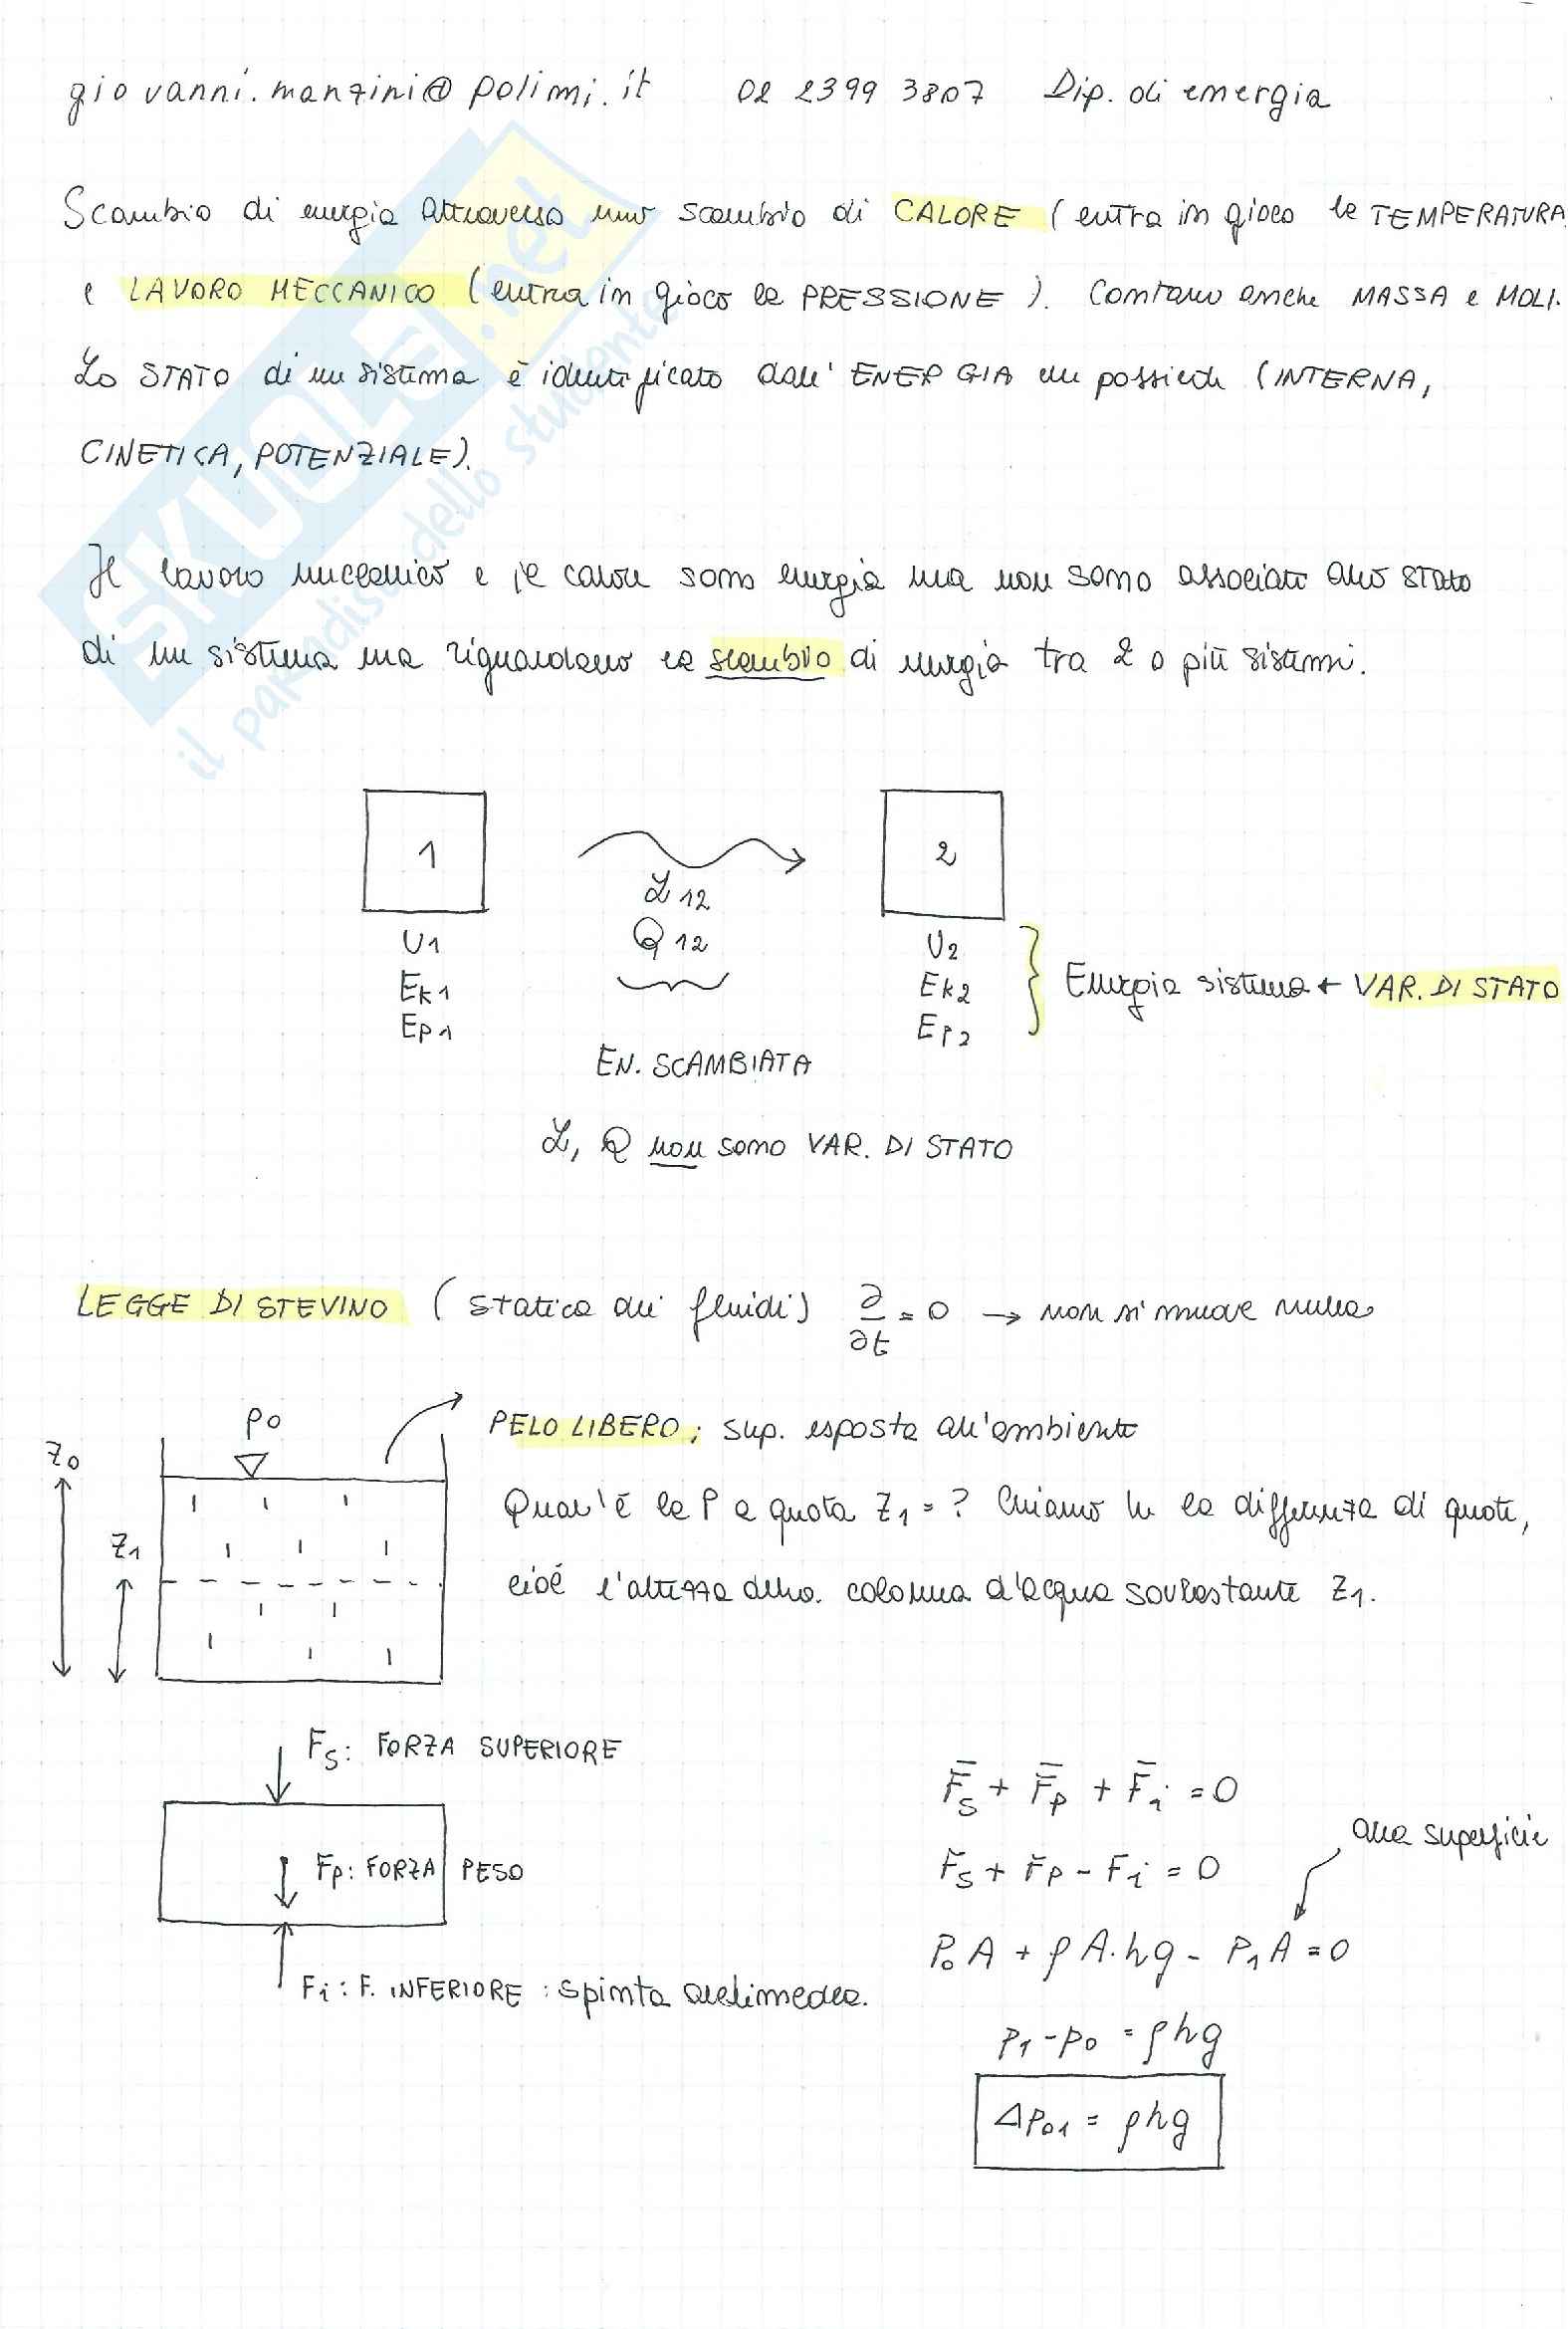 giovanni.manzini@polimi.it 02 2399 3807 Dip. di energia
Scambio di energia attraverso uno scambio di CALORE (entra in gioco la TEMPERATURA)
e LAVORO MECCANICO (entra in gioco la PRESSIONE). Contano anche MASSA e MOLI.
Lo STATO di un sistema è identificato dall'ENERGIA che possiede (INTERNA,
CINETICA, POTENZIALE).
Il lavoro meccanico e il calore sono energia ma non sono associati allo stato
di un sistema ma riguardano lo scambio di energia tra 2 o più sistemi.
1 2
L12
Q12
U1 U2
Ek1 Ek2
Ep1 Ep2
Energia sistema ← VAR. DI STATO
EN. SCAMBIATA
L, Q non sono VAR. DI STATO
LEGGE DI STEVINO (statica dei fluidi) ∂/∂t = 0 → non si muove nulla
p0
z0
z1
PELO LIBERO: sup. esposta all'ambiente
Qual'è la P a quota z1 = ? Chiamo h la differenza di quote,
cioè l'altezza della colonna d'acqua sovrastante z1.
Fs: FORZA SUPERIORE
Fp: FORZA PESO
Fi: F. INFERIORE: spinta archimedea.
F̄s + F̄p + F̄i = 0
Fs + Fp - Fi = 0
alla superficie
P0 A + ρ A·hg - P1 A = 0
p1 - p0 = ρhg
Δp01 = ρhg
SKUOLA.net
il paradiso dello studente